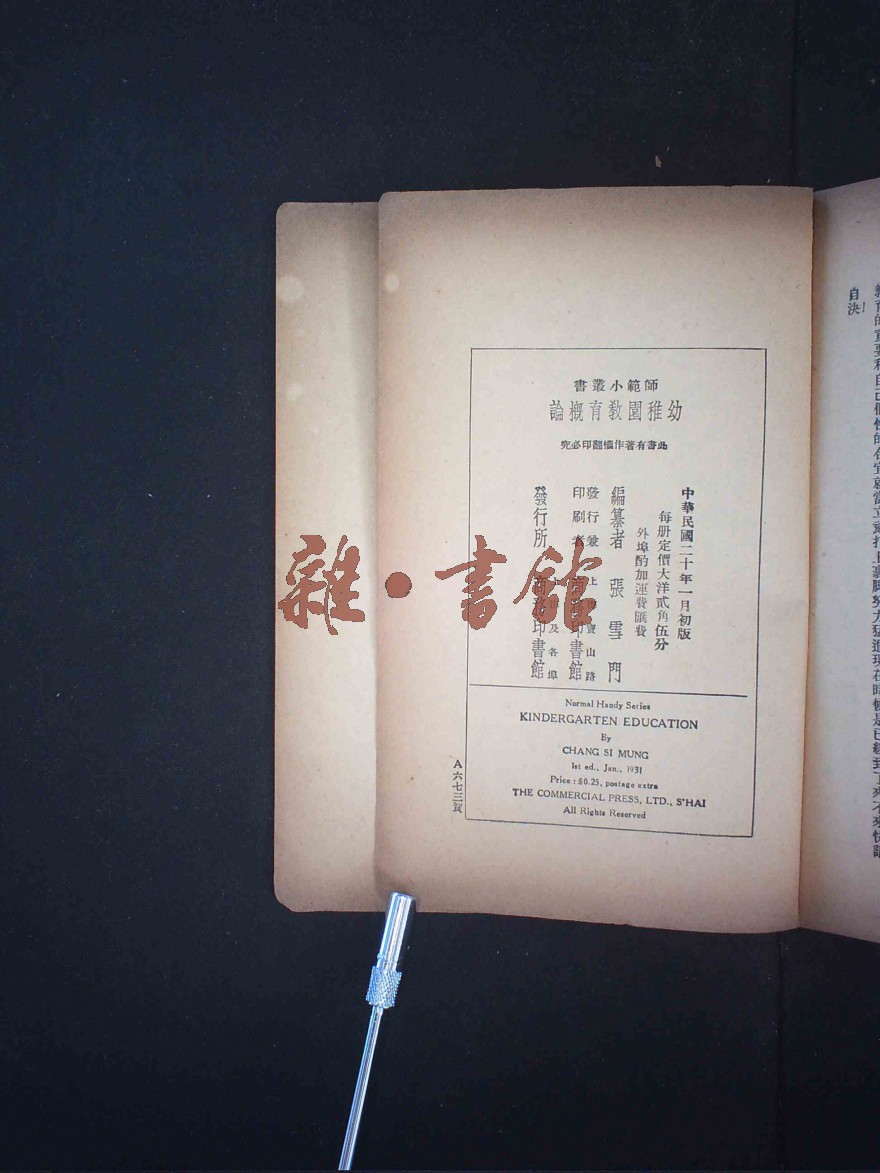 師範小叢書
幼稚園教育概論
此書有著作權翻印必究
中華民國二十年一月初版
每册定價大洋貳角伍分
外埠酌加運費匯費
編纂者 張雪門
發行兼印刷者 上海寶山路 商務印書館
發行所 上海及各埠 商務印書館
Normal Handy Series
KINDERGARTEN EDUCATION
By
CHANG SI MUNG
1st ed., Jan., 1931
Price: $0.25, postage extra
THE COMMERCIAL PRESS, LTD., S'HAI
All Rights Reserved
A六七三
雜·書館
自決!